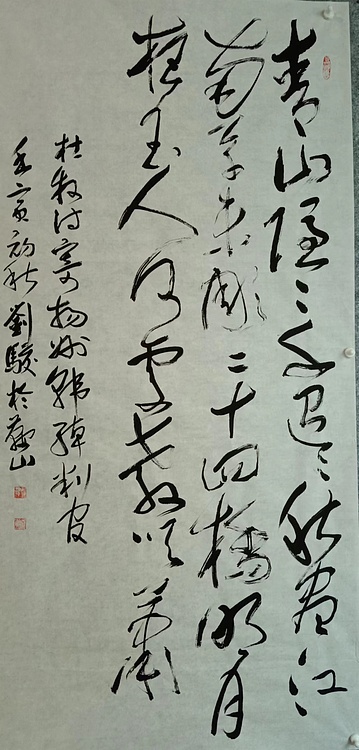 青山隱〻水迢〻秋盡江
南草未彫二十四橋明月
玉人何處教吹簫
杜牧詩寄揚州韓綽判官
壬寅初秋劉駿於山